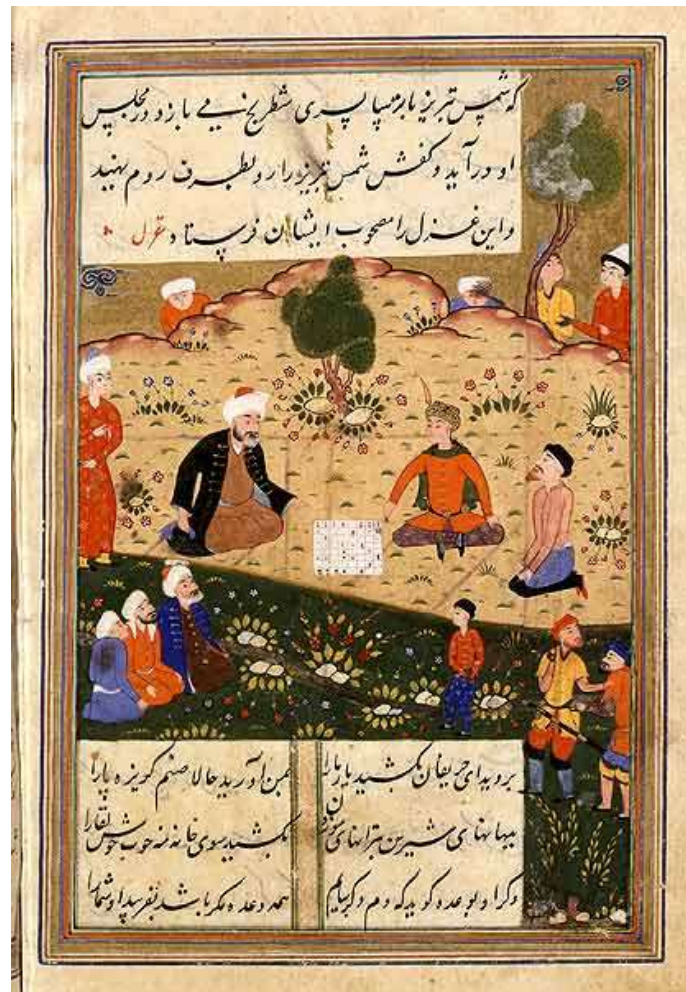 که شمس تبریز با ترسا پسری شطرنج می بازد و در مجلس
او درآید و کفش شمس تبریز را رو بطرف روم بنهید
و این غزل را مصحوب ایشان فرستاد غزل
بروید ای حریفان بکشید یار ما را بمن آورید حالا صنم گریزه پا را
ببهانهای شیرین بترانهای موزون بکشید سوی خانه مه خوب خوش لقا را
وگر او بوعده گوید که دم دگر بیایم همه وعده مکر باشد بفریبد او شما را